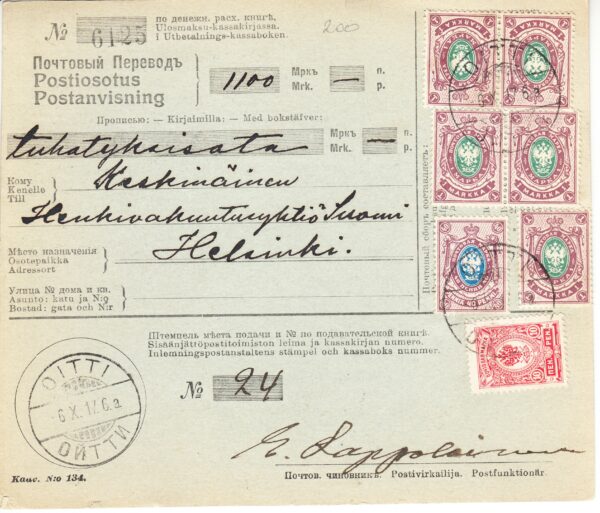 № 6125
по денежн. расх. книгѣ.
Ulosmaksu-kassakirjassa.
i Utbetalnings-kassaboken.
200
Почтовый Переводъ
Postiosotus
Postanvisning
1100 Мркъ — п.
Mrk. — p.
Прописью: — Kirjaimilla: — Med bokstäfver:
tuhatyksisata Мркъ — п.
Mrk. — p.
Кому
Kenelle
Till
Keskinäinen
Henkivakuutusyhtiö Suomi
Мѣсто назначенія
Osotepaikka
Adressort
Helsinki.
Улица № дома и кв.
Asunto: katu ja N:o
Bostad: gata och N:r
Почтовый сборъ составляетъ:
1 MARKKA 1
1 MARKKA 1
1 MARKKA 1
1 MARKKA 1
OITTI
ОЙТТИ
10 ПЕН. PEN. 10
Штемпель мѣста подачи и № по подавательской книгѣ.
Sisäänjättöpostitoimiston leima ja kassakirjan numero.
Inlemningspostanstaltens stämpel och kassaboks nummer.
№ 24
OITTI
6.X.17.6.a
ОЙТТИ
Почтов. чиновникъ. Postivirkailija. Postfunktionär.
Канc. N:o 134.